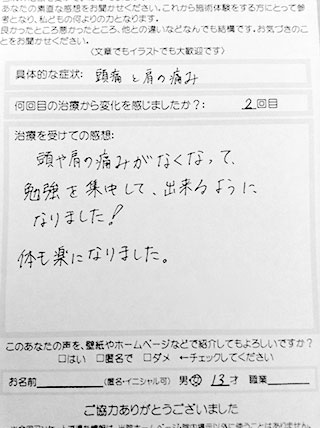 あなたの素直な感想をお聞かせください。これから施術体験をする方にとって参
考となり、私どもの何よりの力となります。
良かったところ悪かったところ、他との違いなどなんでも結構です。お気づきのこ
とをお聞かせください。
(文章でもイラストでも大歓迎です)
具体的な症状: 頭痛と肩の痛み
何回目の治療から変化を感じましたか?: 2回目
治療を受けての感想:
頭や肩の痛みがなくなって、
勉強を集中して、出来るように
なりました!
体も楽になりました。
このあなたの声を、壁紙やホームページなどで紹介してもよろしいですか?
□はい □匿名で □ダメ ←チェックしてください
お名前 (匿名・イニシャル可) 男・女 13才 職業
ご協力ありがとうございました